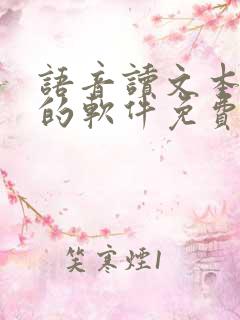 語音讀文本
的軟件免費
笑寒煙1